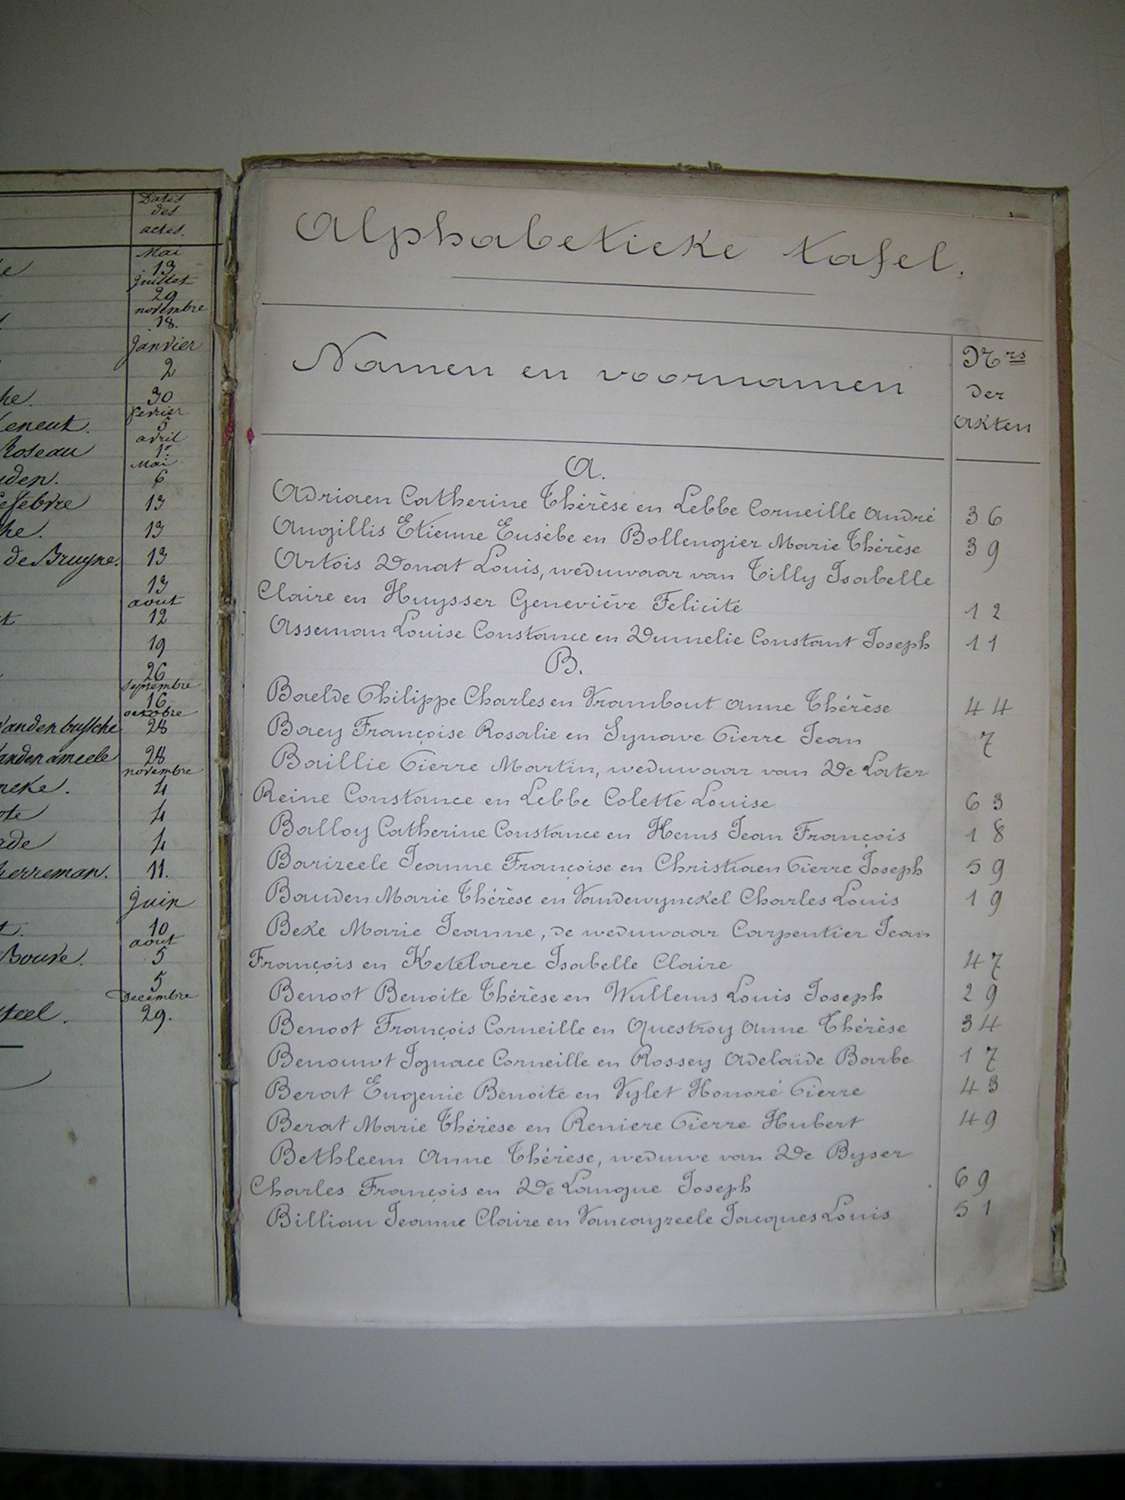 Dates
des
actes.
Mai
13
juillet
29
novembre
18.
janvier
2
he. 30
fevrier
eneut. 5
avril
Roseau 1r
Mai
den. 6
Lefebvre 13
he. 13
de Bruyne. 13
13
aout
t 12
19
26
septembre
16
octobre
Vandenbussche 28
Vandenameele 28
novembre
neke. 4
ote 4
ade 4
herreman. 11.
juin
t. 10
aout
Bouve. 5
5
Decembre
steel. 29.
Alphabetieke tafel.
Namen en voornamen
Nrs
der
Akten
A.
Adriaen Catherine Thérèse en Lebbe Corneille André 36
Angillis Etienne Eusèbe en Bollengier Marie Thérèse 39
Artois Donat Louis, weduwaar van Tilly Isabelle
Claire en Huysser Geneviève Felicité 12
Asseman Louise Constance en Dumelie Constant Joseph 11
B.
Baelde Philippe Charles en Vrambout Anne Thérèse 44
Baey Françoise Rosalie en Synave Pierre Jean 7
Baillie Pierre Martin, weduwaar van De Later
Reine Constance en Lebbe Colette Louise 63
Balloy Catherine Constance en Hems Jean François 18
Barizeele Jeanne Françoise en Christiaen Pierre Joseph 59
Bauden Marie Thérèse en Vandewynckel Charles Louis 19
Beke Marie Jeanne, de weduwaar Carpentier Jean
François en Ketelaere Isabelle Claire 47
Benoot Benoite Thérèse en Wullems Louis Joseph 29
Benoot François Corneille en Questroy Anne Thérèse 34
Benouwt Ignace Corneille en Rossey Adelaïde Barbe 17
Berat Eugenie Benoite en Vylet Honoré Pierre 43
Berat Marie Thérèse en Reniere Pierre Hubert 49
Bethleem Anne Thérèse, weduwe van De Byser
Charles François en De Langue Joseph 69
Billiau Jeanne Claire en Vancayzeele Jacques Louis 51